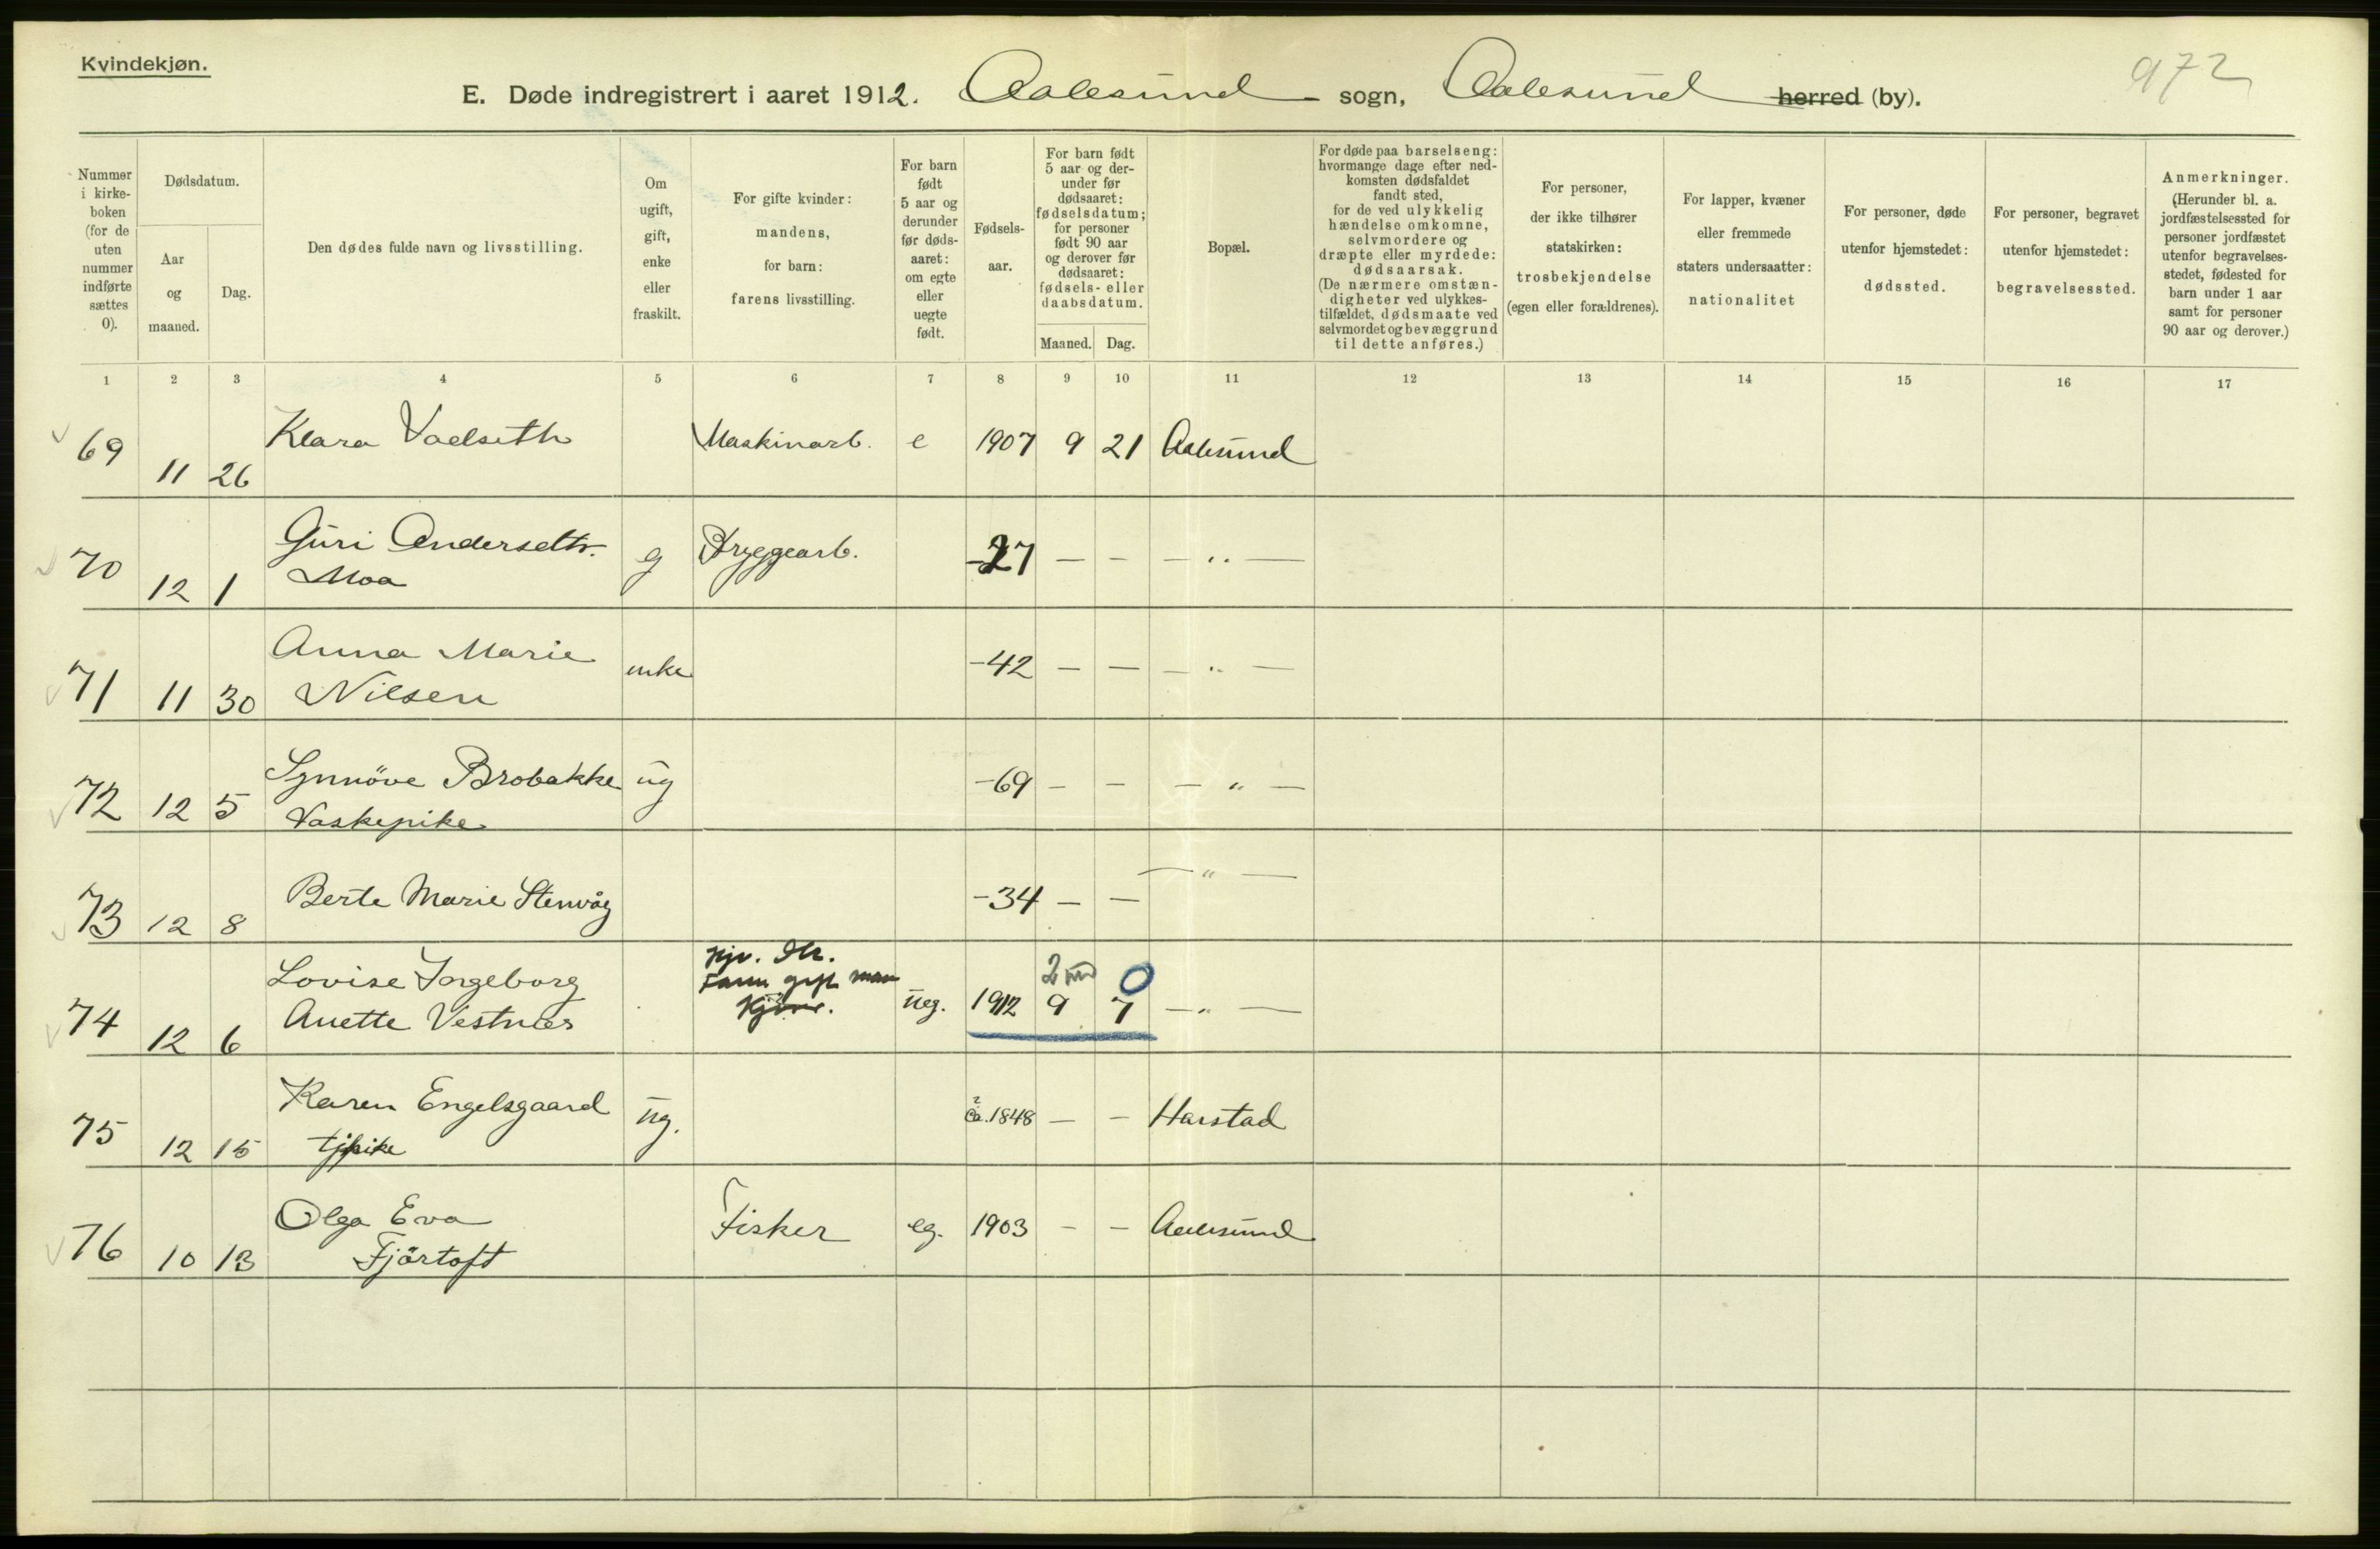 Kvindekjøn.
E. Døde indregistrert i aaret 1912. Aalesund sogn, Aalesund herred (by).
972
Nummer i kirke-boken (for de uten nummer indførte sættes 0).
Dødsdatum.
Aar og maaned.
Dag.
Den dødes fulde navn og livsstilling.
Om ugift, gift, enke eller fraskilt.
For gifte kvinder: mandens, for barn: farens livsstilling.
For barn født 5 aar og derunder før døds-aaret: om egte eller uegte født.
Fødsels-aar.
For barn født 5 aar og der-under før dødsaaret: fødselsdatum; for personer født 90 aar og derover før dødsaaret: fødsels- eller daabsdatum.
Maaned. Dag.
Bopæl.
For døde paa barselseng: hvormange dage efter ned-komsten dødsfaldet fandt sted, for de ved ulykkelig hændelse omkomne, selvmordere og dræpte eller myrdede: dødsaarsak. (De nærmere omstæn-digheter ved ulykkes-tilfældet, dødsmaate ved selvmordet og bevæggrund til dette anføres.)
For personer, der ikke tilhører statskirken: trosbekjendelse (egen eller forældrenes).
For lapper, kvæner eller fremmede staters undersaatter: nationalitet
For personer, døde utenfor hjemstedet: dødssted.
For personer, begravet utenfor hjemstedet: begravelsessted.
Anmerkninger. (Herunder bl. a. jordfæstelsessted for personer jordfæstet utenfor begravelses-stedet, fødested for barn under 1 aar samt for personer 90 aar og derover.)
1 2 3 4 5 6 7 8 9 10 11 12 13 14 15 16 17
69 11 26 Klara Vaelseth Maskinarb. e 1907 9 21 Aalesund
70 12 1 Guri Andersdtr. Moa g Bryggearb. -27 — — — „ —
71 11 30 Anna Marie Nilsen enke -42 — — — „ —
72 12 5 Synnöve Brobakke Vaskepike ug -69 — — — „ —
73 12 8 Berte Marie Stenvåg -34 — — — „ —
74 12 6 Lovise Ingeborg Anette Vestnes ueg. 1912 2 9 0 7 — „ —
75 12 15 Karen Engelsgaard tjpike ug. ca. 1848 — — Harstad
76 10 13 Olga Eva Fjörtoft Fisker eg. 1903 — — Aalesund